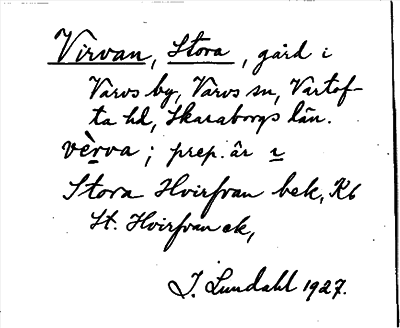 Virvan, Stora, gård i
Varvs by, Varvs sn, Vartof-
ta hd, Skaraborgs län.
vè̱rva; prep. är i
Stora Hvirfvan bek, Kb
St. Hvirfvan ek,
J. Lundahl 1927.